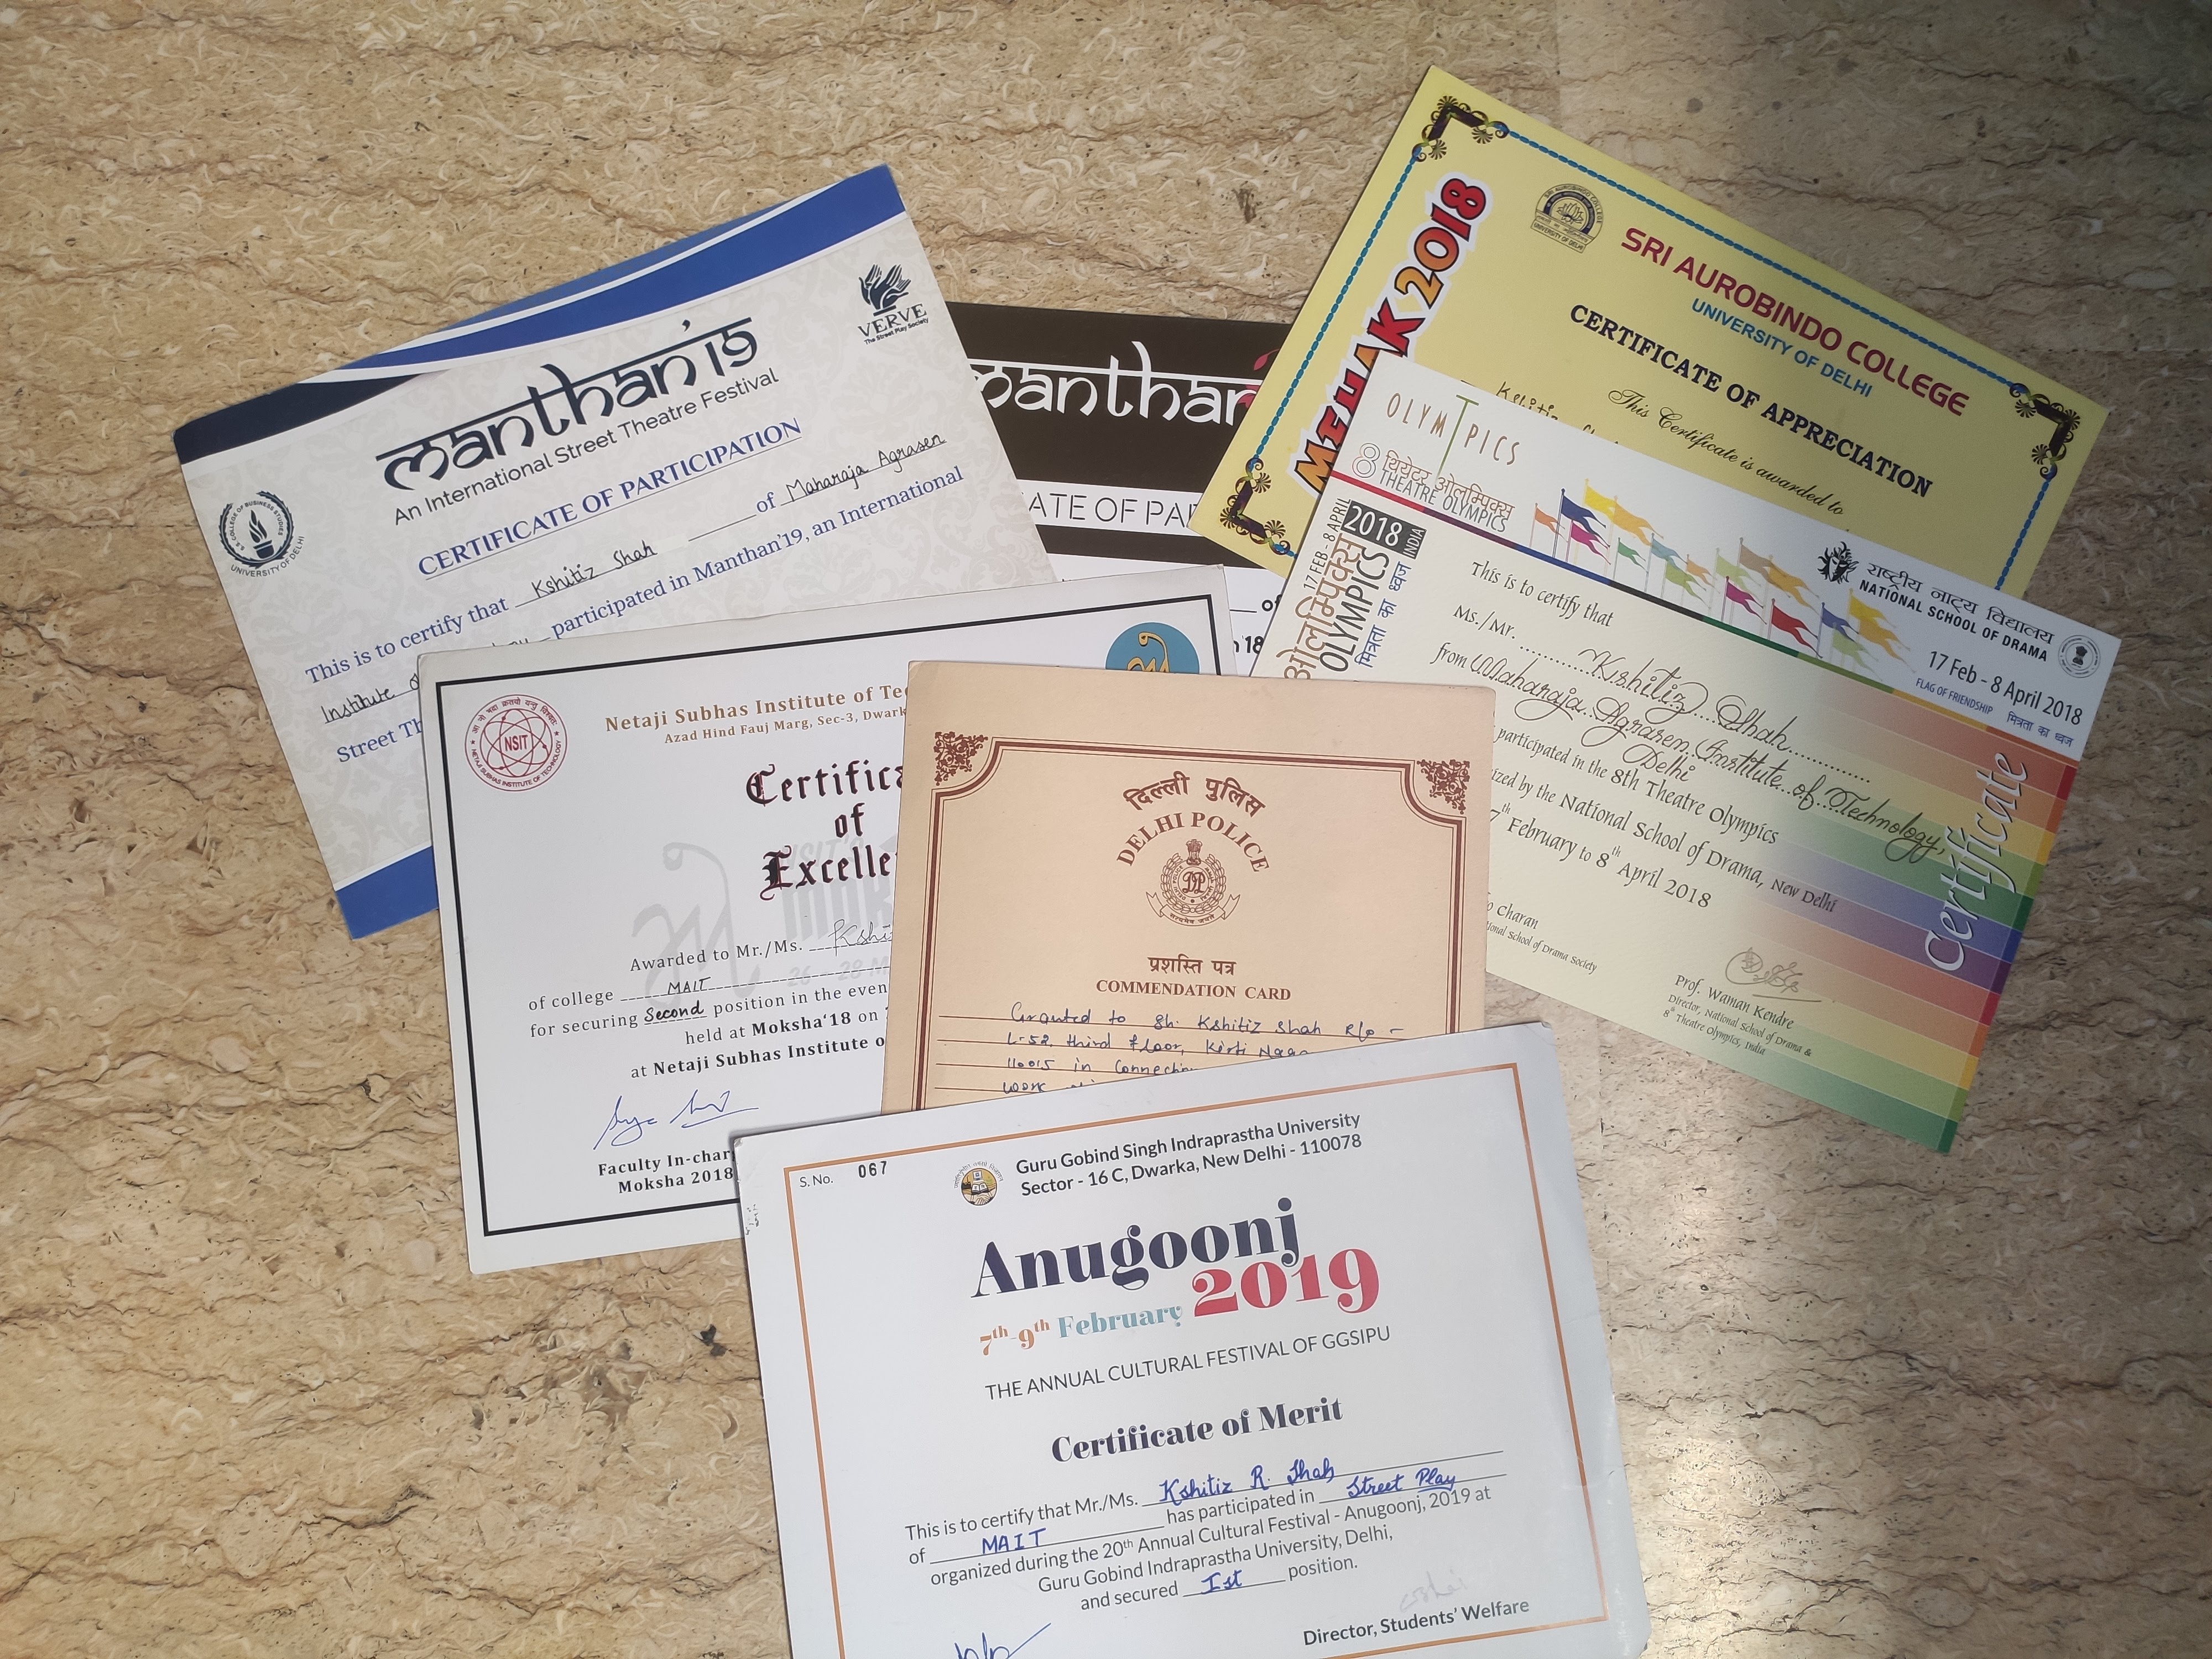 manthan'19
An International Street Theatre Festival
CERTIFICATE OF PARTICIPATION
This is to certify that Kshitiz Shah of Maharaja Agrasen
participated in Manthan'19, an International
Institute
Street
VERVE
The Street Play Society
S.S. COLLEGE OF BUSINESS STUDIES
UNIVERSITY OF DELHI
manthan
ATE OF PA
of
18
MEHAK 2018
SRI AUROBINDO COLLEGE
UNIVERSITY OF DELHI
SRI AUROBINDO COLLEGE
UNIVERSITY OF DELHI
CERTIFICATE OF APPRECIATION
This Certificate is awarded to
Kshitiz
OLYMPICS
8 थियेटर ओलम्पिक्स
THEATRE OLYMPICS
17 FEB - 8 APRIL
2018
INDIA
ओलम्पिक्स
OLYMPICS
मित्रता का ध्वज
राष्ट्रीय नाट्य विद्यालय
NATIONAL SCHOOL OF DRAMA
17 Feb - 8 April 2018
FLAG OF FRIENDSHIP मित्रता का ध्वज
This is to certify that
Ms./Mr. Kshitiz Shah
from Maharaja Agrasen Institute of Technology,
Delhi
participated in the 8th Theatre Olympics
ized by the National School of Drama, New Delhi
7th February to 8th April 2018
Certificate
o Charan
onal School of Drama Society
Prof. Waman Kendre
Director, National School of Drama &
8th Theatre Olympics, India
NSIT
NETAJI SUBHAS INSTITUTE OF TECHNOLOGY
Netaji Subhas Institute of Tec
Azad Hind Fauj Marg, Sec-3, Dwark
Certifica
of
Excelle
Awarded to Mr./Ms. Kshi
of college MAIT
for securing Second position in the even
held at Moksha'18 on
at Netaji Subhas Institute o
26 - 28 M
Faculty In-char
Moksha 2018
दिल्ली पुलिस
DELHI POLICE
DP
सत्यमेव जयते
प्रशस्ति पत्र
COMMENDATION CARD
Granted to Sh. Kshitiz Shah R/o -
L-52, third floor, Kirti Naga
110015 in connection
work
S. No. 067
Guru Gobind Singh Indraprastha University
Sector - 16 C, Dwarka, New Delhi - 110078
Anugoonj
7th-9th February 2019
THE ANNUAL CULTURAL FESTIVAL OF GGSIPU
Certificate of Merit
This is to certify that Mr./Ms. Kshitiz R. Shah
of MAIT has participated in Street Play
organized during the 20th Annual Cultural Festival - Anugoonj, 2019 at
Guru Gobind Indraprastha University, Delhi,
and secured Ist position.
Director, Students' Welfare